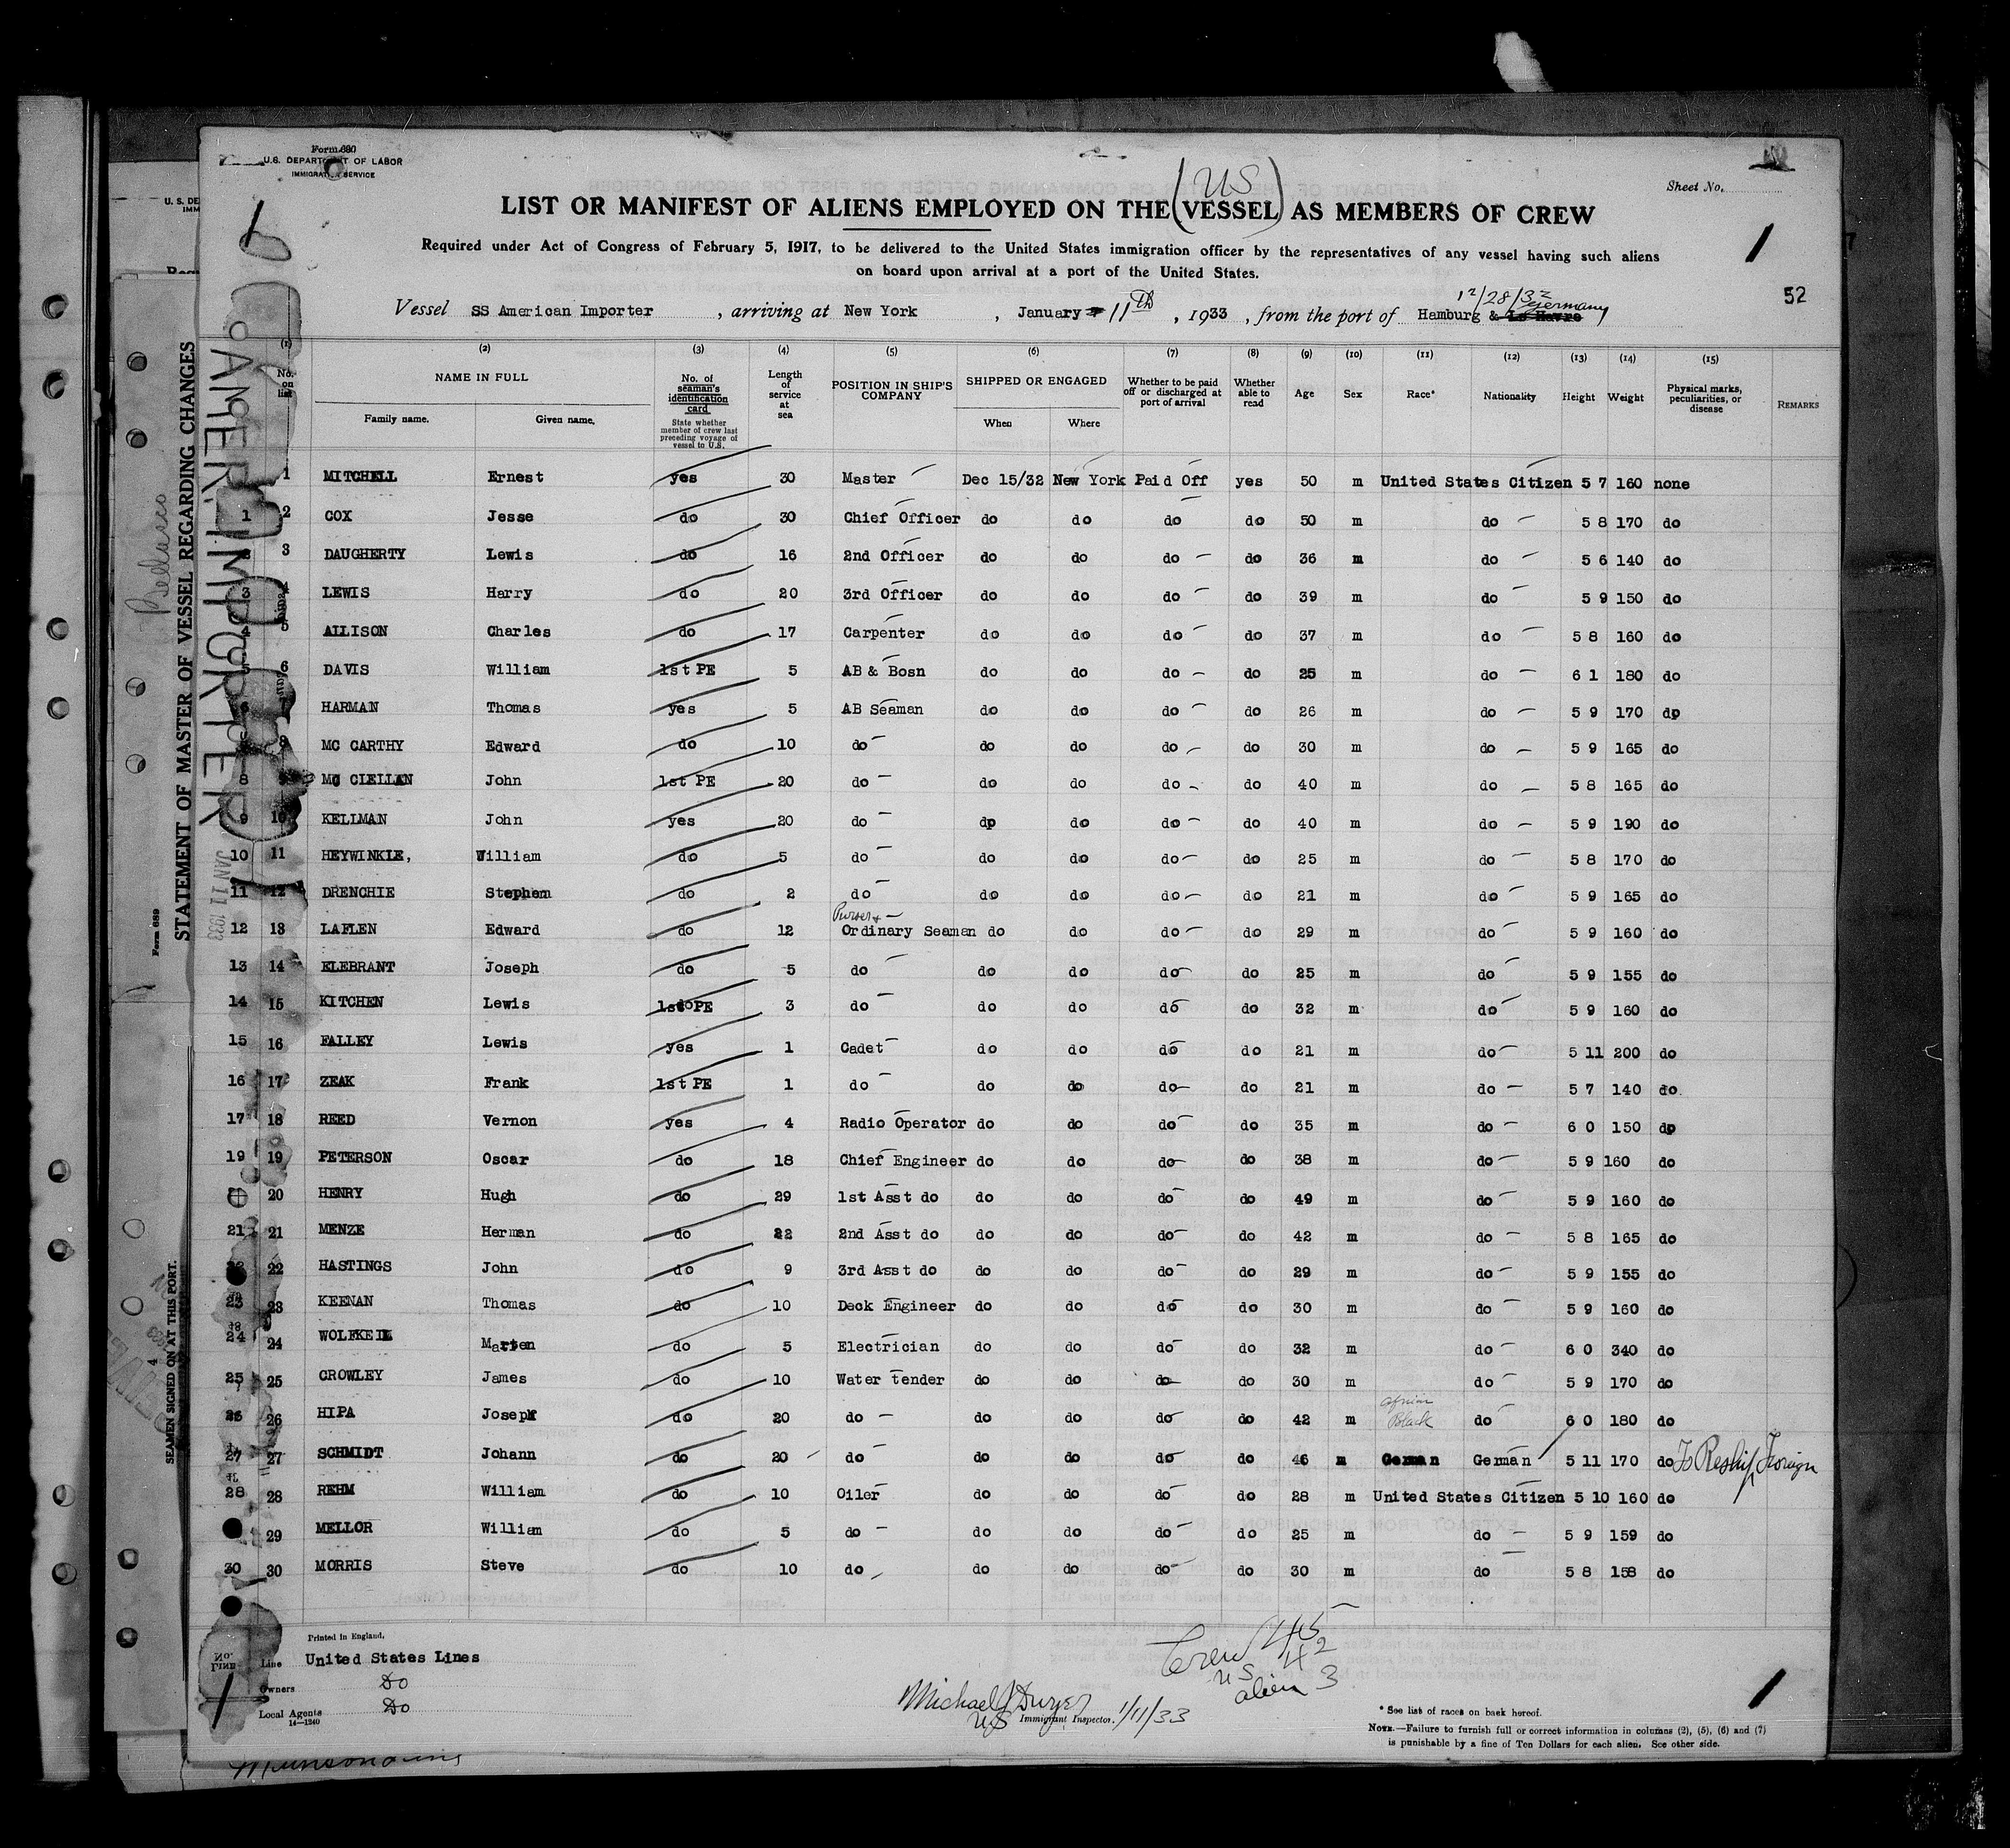 Form 680
U.S. DEPARTMENT OF LABOR
IMMIGRATION SERVICE
Sheet No.
(US)
LIST OR MANIFEST OF ALIENS EMPLOYED ON THE (VESSEL) AS MEMBERS OF CREW
Required under Act of Congress of February 5, 1917, to be delivered to the United States immigration officer by the representatives of any vessel having such aliens
on board upon arrival at a port of the United States.
1
52
12/28/32
Vessel SS American Importer , arriving at New York , January 11th , 1933 , from the port of Hamburg & Le Havre Germany
(1) (2) (3) (4) (5) (6) (7) (8) (9) (10) (11) (12) (13) (14) (15)
No. on list NAME IN FULL Family name. Given name. No. of seaman's identification card State whether member of crew last preceding voyage of vessel to U.S. Length of service at sea POSITION IN SHIP'S COMPANY SHIPPED OR ENGAGED When Where Whether to be paid off or discharged at port of arrival Whether able to read Age Sex Race* Nationality Height Weight Physical marks, peculiarities, or disease REMARKS
1 MITCHELL Ernest yes 30 Master Dec 15/32 New York Paid Off yes 50 m United States Citizen 5 7 160 none
1 2 COX Jesse do 30 Chief Officer do do do do 50 m do 5 8 170 do
2 3 DAUGHERTY Lewis do 16 2nd Officer do do do do 36 m do 5 6 140 do
3 4 LEWIS Harry do 20 3rd Officer do do do do 39 m do 5 9 150 do
4 5 ALLISON Charles do 17 Carpenter do do do do 37 m do 5 8 160 do
5 6 DAVIS William 1st PE 5 AB & Bosn do do do do 25 m do 6 1 180 do
6 7 HARMAN Thomas yes 5 AB Seaman do do do do 26 m do 5 9 170 dp
8 MC CARTHY Edward do 10 do do do do do 30 m do 5 9 165 do
8 9 MC CLELLAN John 1st PE 20 do do do do do 40 m do 5 8 165 do
9 10 KELLMAN John yes 20 do dp do do do 40 m do 5 9 190 do
10 11 HEYWINKLE, William do 5 do do do do do 25 m do 5 8 170 do
11 12 DRENCHIE Stephen do 2 do do do do do 21 m do 5 9 165 do
Purser &
12 13 LAFLEN Edward do 12 Ordinary Seaman do do do do 29 m do 5 9 160 do
13 14 ELEBRANT Joseph do 5 do do do do do 25 m do 5 9 155 do
14 15 KITCHEN Lewis 1st PE 3 do do do do do 32 m do 5 9 160 do
15 16 FALLEY Lewis yes 1 Cadet do do do do 21 m do 5 11 200 do
16 17 ZEAK Frank 1st PE 1 do do do do do 21 m do 5 7 140 do
17 18 REED Vernon yes 4 Radio Operator do do do do 35 m do 6 0 150 dp
19 19 PETERSON Oscar do 18 Chief Engineer do do do do 38 m do 5 9 160 do
20 HENRY Hugh do 29 1st Asst do do do do do 49 m do 5 9 160 do
21 21 MENZE Herman do 22 2nd Asst do do do do do 42 m do 5 8 165 do
22 22 HASTINGS John do 9 3rd Asst do do do do do 29 m do 5 9 155 do
23 23 KEENAN Thomas do 10 Deck Engineer do do do do 30 m do 5 9 160 do
24 24 WOLFKEIL Marten do 5 Electrician do do do do 32 m do 6 0 340 do
25 25 CROWLEY James do 10 Water tender do do do do 30 m do 5 9 170 do
26 26 HIPA Joseph do 20 do do do do do 42 m African Black do 6 0 180 do
27 27 SCHMIDT Johann do 20 do do do do do 46 m German German 5 11 170 do To Reship Foreign
28 28 REHM William do 10 Oiler do do do do 28 m United States Citizen 5 10 160 do
29 MELLOR William do 5 do do do do do 25 m do 5 9 159 do
30 30 MORRIS Steve do 10 do do do do do 30 m do 5 8 158 do
Printed in England.
Line United States Lines
Owners Do
Local Agents Do
14—1240
Crew 45
US 42
alien 3
Michael J Dwyer
US Immigrant Inspector. 1/11/33
* See list of races on back hereof.
NOTE.—Failure to furnish full or correct information in columns (2), (5), (6) and (7)
is punishable by a fine of Ten Dollars for each alien. See other side.
1
AMER. IMPORTER
JAN 11 1933
STATEMENT OF MASTER OF VESSEL REGARDING CHANGES
Form 689
SEAMEN SIGNED ON AT THIS PORT.